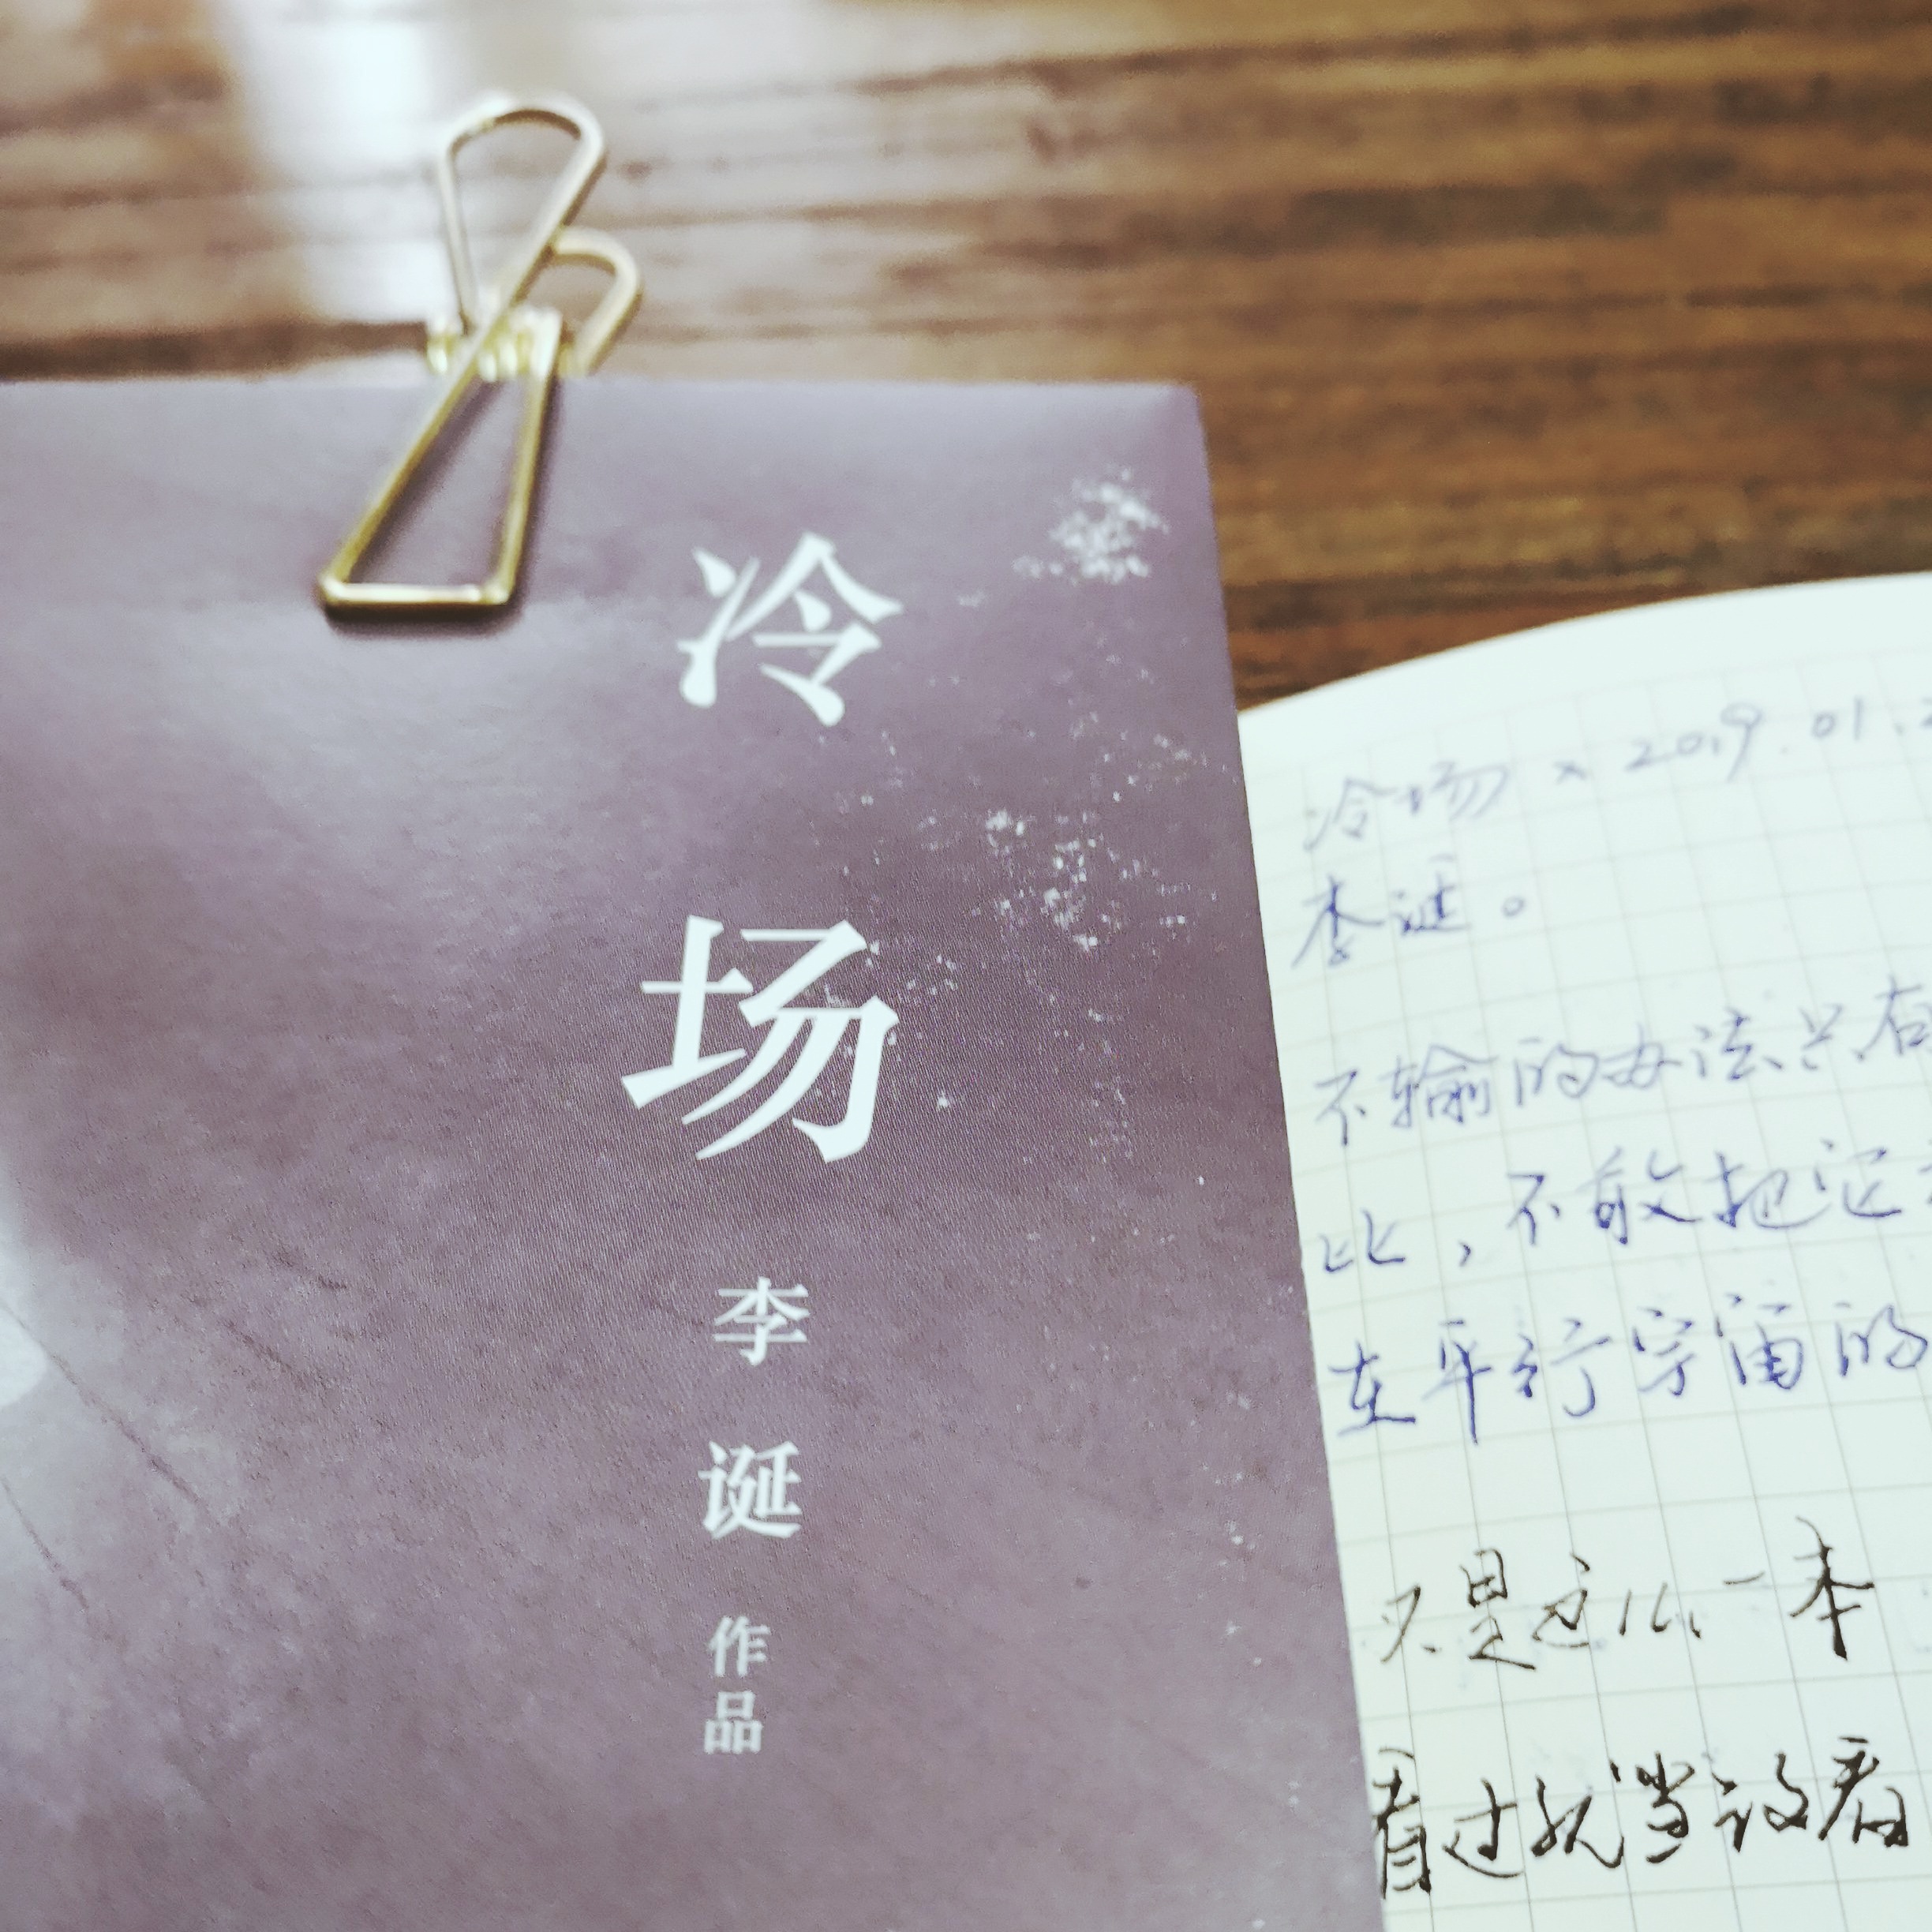 冷场
李诞
作品
冷场 × 2019.01.
李诞。
不输的办法只有
比，不敢把它
在平行宇宙的
只是这么一本
看过就当没看